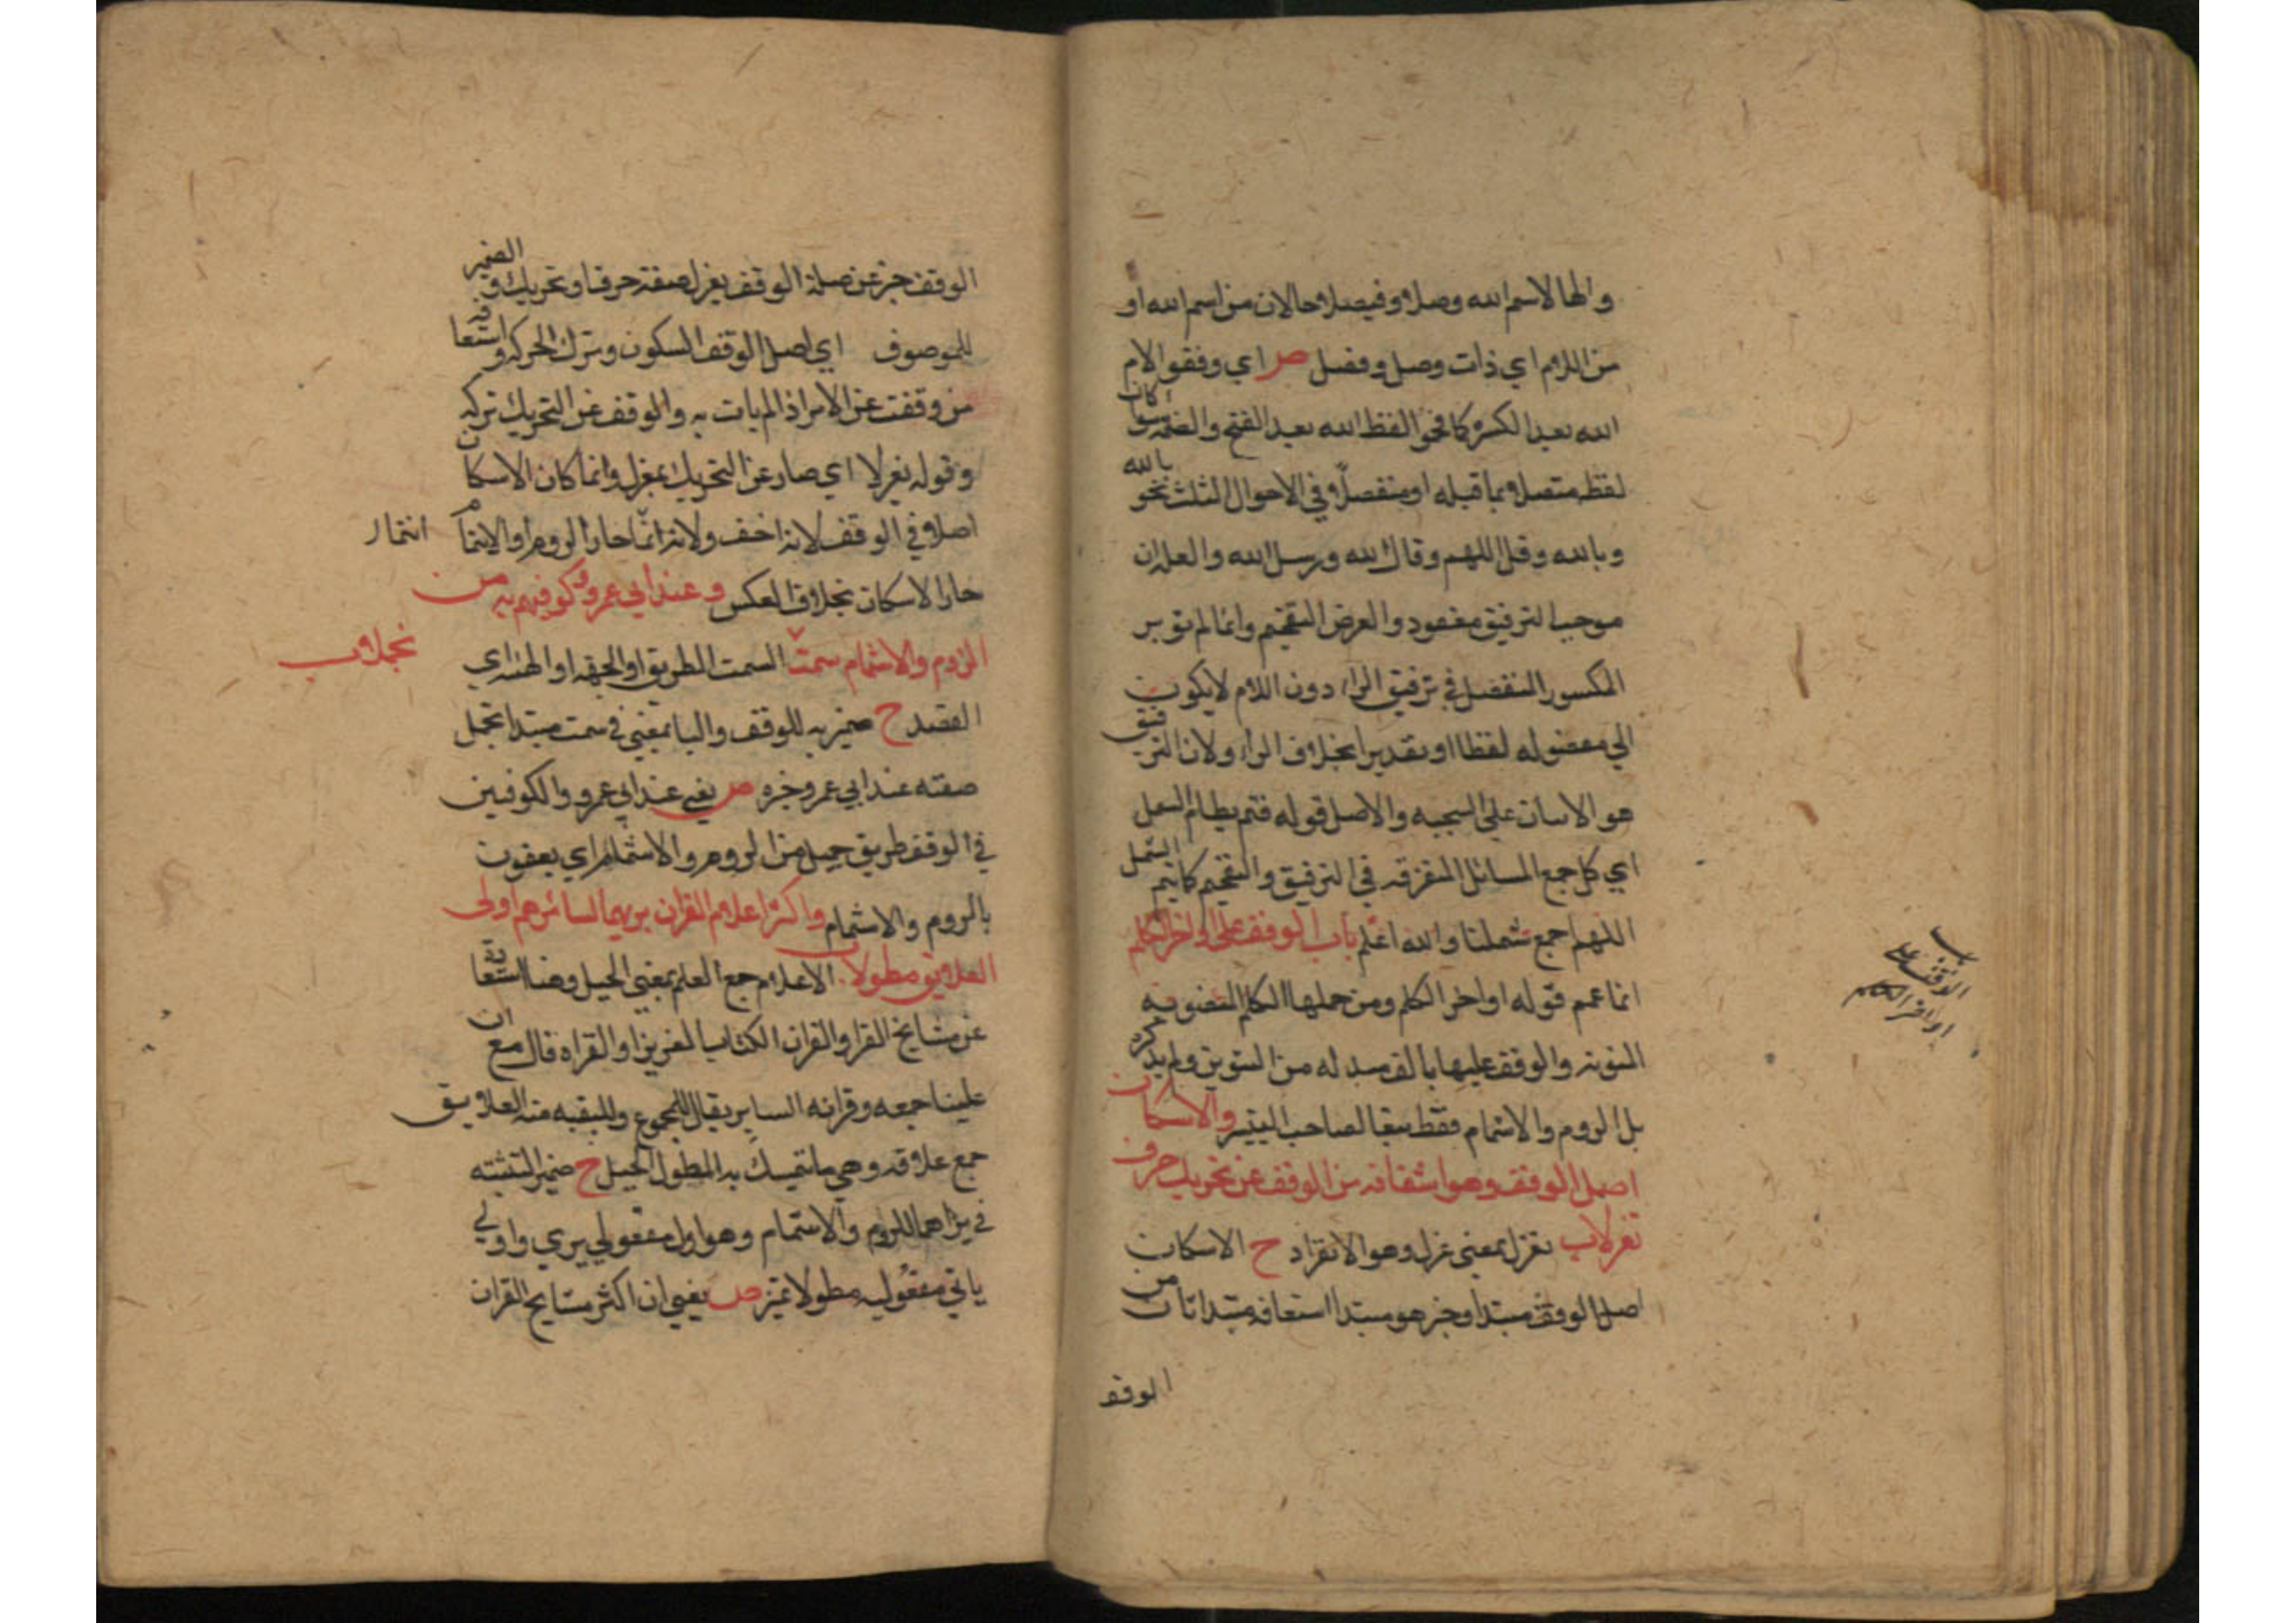 والها لاسم الله وصلا وفيصلا حالان من اسم الله او
من اللام اي ذات وصل وفصل ص اي وفقوا لام
الله بعيد الكسر كما فخموا لفظ الله بعيد الفتح والضمه سوا كان
لفظ متصلا بما قبله او منفصلا وفي الاحوال الثلث نحو بالله
وبالله وقل اللهم وقال الله ورسل الله والعله ان
موجب الترقيق مفقود والغرض التفخيم وانما لم يوثر
المكسور المنفصل في ترقيق الراء دون اللام لا يكون
الي معضوله لفظا او تقديرا بخلاف الراء ولان الترقيق
هو الاسان على السجيه والاصل قوله فتم نظام الشمل
اي كل جمع المسائل المتفرقه في الترقيق والتفخيم كما يتم الشمل
اللهم اجمع شملنا والله اعلم باب الوقف على اواخر الكلم
انما عمم قوله اواخر الكلم ومن جملها الكلم المنصوبه
المنونه والوقف عليها بالف مبدله من التنوين ولم يذكره
بل الروم والاشمام فقط تبعا لصاحب التيسير والاسكان
اصل الوقف وهو اشتقاقه من الوقف عن تحريك حرف
تعزلا ب تعزل بمعنى عزل وهو الانفراد ح الاسكان
اصل الوقف مبتدا وخبر هو مبتدا اشتقاقه مبتدا ثان من
الوقف
باب
الوقف على
اواخر الكلم
الوقف خبر عن صلة الوقف تعزل صفة حرف او تحريك وبه الضمير
للموصوف اي اصل الوقف السكون وترك الحركه واشتقاقه
من وقفت عن الامر اذا لم يات به والوقف عن التحريك تركه
وقوله تعزلا اي صار عن التحريك بمعزل وانما كان الاسكان
اصلا في الوقف لانه اخف ولانه انما جاز الروم او الاشمام
حاز الاسكان بخلاف العكس وعند ابي عمرو وكوفيهم به من
الروم والاشمام سمت السمت الطريق او الجهه او الهئه اي
تجملا ب
القصد ح ضمير به للوقف والبا بمعنى في سمت مبتدا تجمل
صفته عند ابي عمرو خبره ص يعني عند ابي عمرو والكوفيين
في الوقف طريق جميل من الروم والاشمام اي يقفون
بالروم والاشمام واكثر اعلام القران يريهما لسائرهم اولى
العلايق مطولا ب الاعلام جمع العلم بمعنى الجبل وهنا استعاره
عن مشايخ القرا والقران الكتاب العزيز او القراه قال مع ان
علينا جمعه وقرانه الساير يقال للمجموع وللبقيه منه العلايق
جمع علاقه وهي ما يتمسك به المطول الحبل ح ضمير التثنيه
في يراهما للروم والاشمام وهو اول مفعولي يري واولي
ياتي مفعوليه مطولا تميز ص يعني ان اكثر مشايخ القران